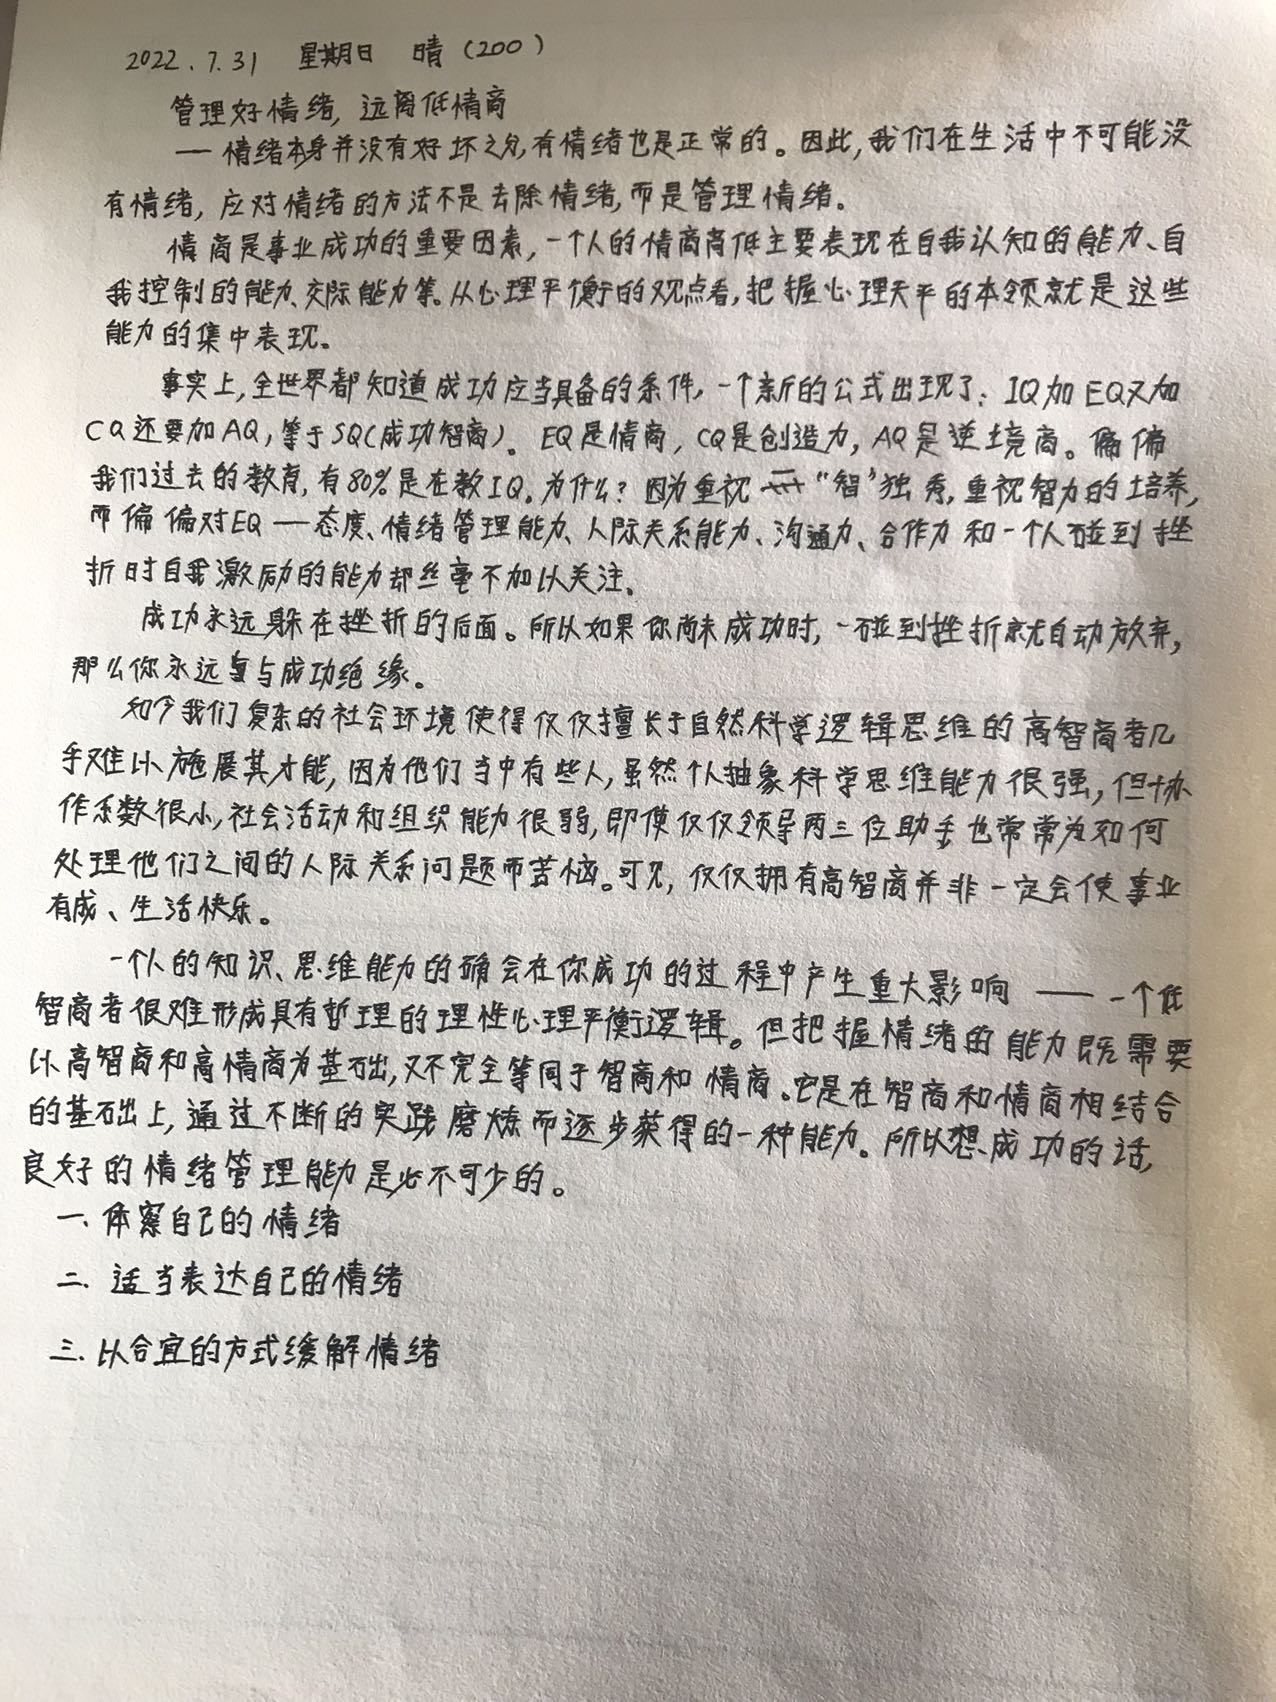 2022.7.31 星期日 晴(200)
管理好情绪,远离低情商
— 情绪本身并没有好坏之分,有情绪也是正常的。因此,我们在生活中不可能没
有情绪,应对情绪的方法不是去除情绪,而是管理情绪。
情商是事业成功的重要因素,一个人的情商高低主要表现在自我认知的能力、自
我控制的能力、交际能力等。从心理平衡的观点看,把握心理天平的本领就是这些
能力的集中表现。
事实上,全世界都知道成功应当具备的条件,一个新的公式出现了:IQ加EQ又加
CQ还要加AQ,等于SQ(成功智商)。EQ是情商,CQ是创造力,AQ是逆境商。偏偏
我们过去的教育,有80%是在教IQ。为什么?因为重视“智”独秀,重视智力的培养,
而偏偏对EQ——态度、情绪管理能力、人际关系能力、沟通力、合作力和一个人碰到挫
折时自我激励的能力却丝毫不加以关注。
成功永远躲在挫折的后面。所以如果你尚未成功时,一碰到挫折就自动放弃,
那么你永远与成功绝缘。
如今我们复杂的社会环境使得仅仅擅长于自然科学逻辑思维的高智商者几
乎难以施展其才能,因为他们当中有些人,虽然个人抽象科学思维能力很强,但协
作系数很小,社会活动和组织能力很弱,即使仅仅领导两三位助手也常常为如何
处理他们之间的人际关系问题而苦恼。可见,仅仅拥有高智商并非一定会使事业
有成、生活快乐。
一个人的知识、思维能力的确会在你成功的过程中产生重大影响——一个低
智商者很难形成具有哲理的理性心理平衡逻辑。但把握情绪的能力既需要
以高智商和高情商为基础,又不完全等同于智商和情商。它是在智商和情商相结合
的基础上,通过不断的实践磨炼而逐步获得的一种能力。所以想成功的话,
良好的情绪管理能力是必不可少的。
一.体察自己的情绪
二.适当表达自己的情绪
三.以合宜的方式缓解情绪